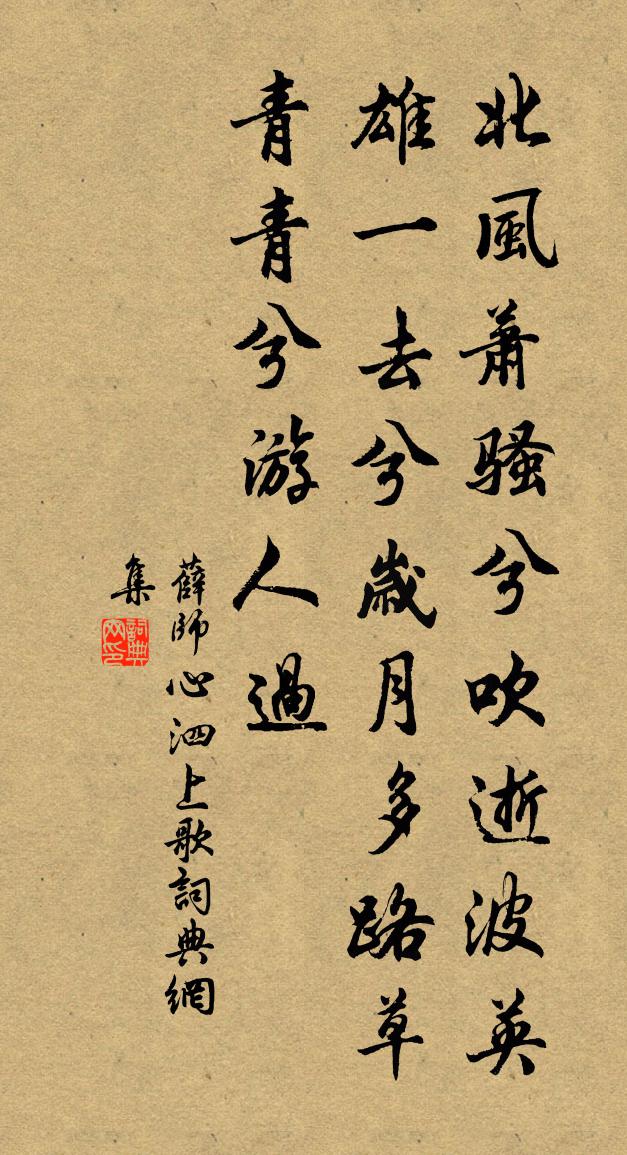 北風蕭騷兮吹逝波英
雄一去兮歲月多路草
青青兮游人過
薛師心泗上歌詞典網
集
詞典
网印